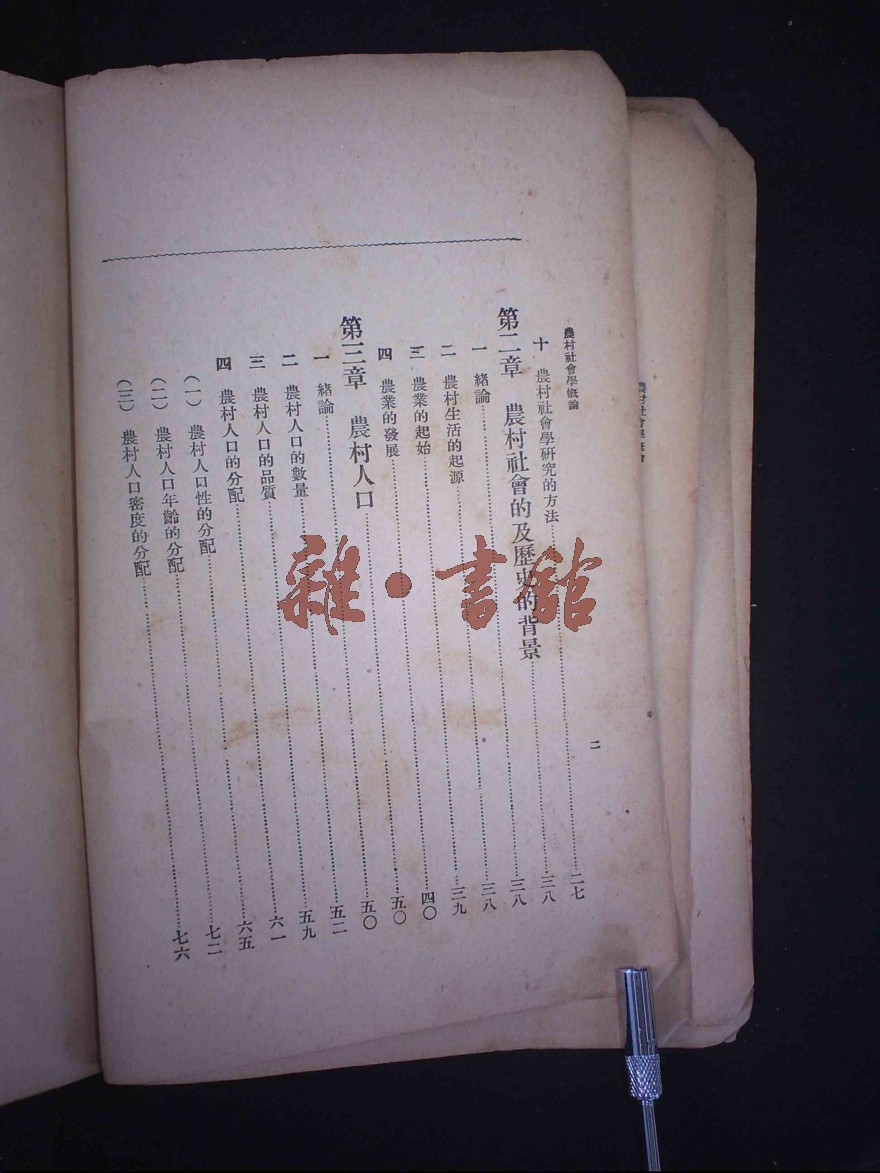 農村社會學概論 二
十 農村社會學研究的方法……二七
第二章 農村社會的及歷史的背景……三八
一 緒論……三八
二 農村生活的起源……三八
三 農業的起始……三九
四 農業的發展……四〇
第三章 農村人口……五〇
一 緒論……五〇
二 農村人口的數量……五二
三 農村人口的品質……五九
四 農村人口的分配……六一
(一) 農村人口性的分配……六五
(二) 農村人口年齡的分配……七二
(三) 農村人口密度的分配……七六
雜·書館